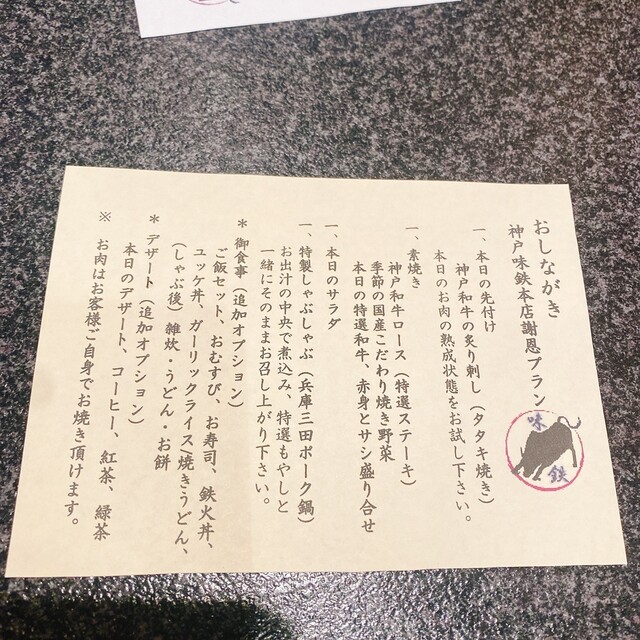 おしながき
神戸味鉄本店謝恩プラン
味鉄
一、本日の先付け
神戸和牛の炙り刺し（タタキ焼き）
本日のお肉の熟成状態をお試し下さい。
一、素焼き
神戸和牛ロース（特選ステーキ）
季節の国産こだわり焼き野菜
本日の特選和牛、赤身とサシ盛り合せ
一、本日のサラダ
一、特製しゃぶしゃぶ（兵庫三田ポーク鍋）
お出汁の中央で煮込み、特選もやしと
一緒にそのままお召し上がり下さい。
＊御食事（追加オプション）
ご飯セット、おむすび、お寿司、鉄火丼、
ユッケ丼、ガーリックライス焼きうどん、
（しゃぶ後）雑炊・うどん・お餅
＊デザート（追加オプション）
本日のデザート、コーヒー、紅茶、緑茶
※ お肉はお客様ご自身でお焼き頂けます。